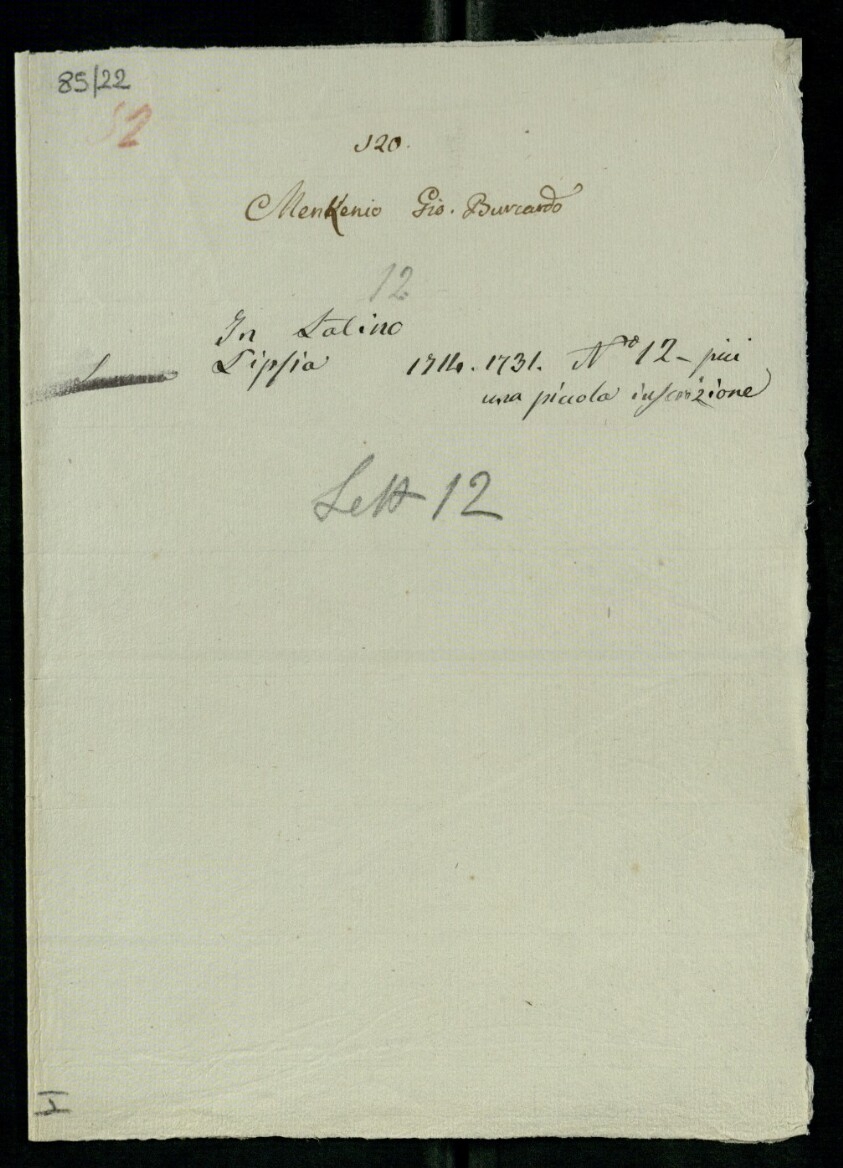 85/22
52
120.
Menkenio Gio. Burcardo
12
In Latino
Lipsia 1714. 1731. Nro 12 - più
una piccola inscrizione
Lett 12
I